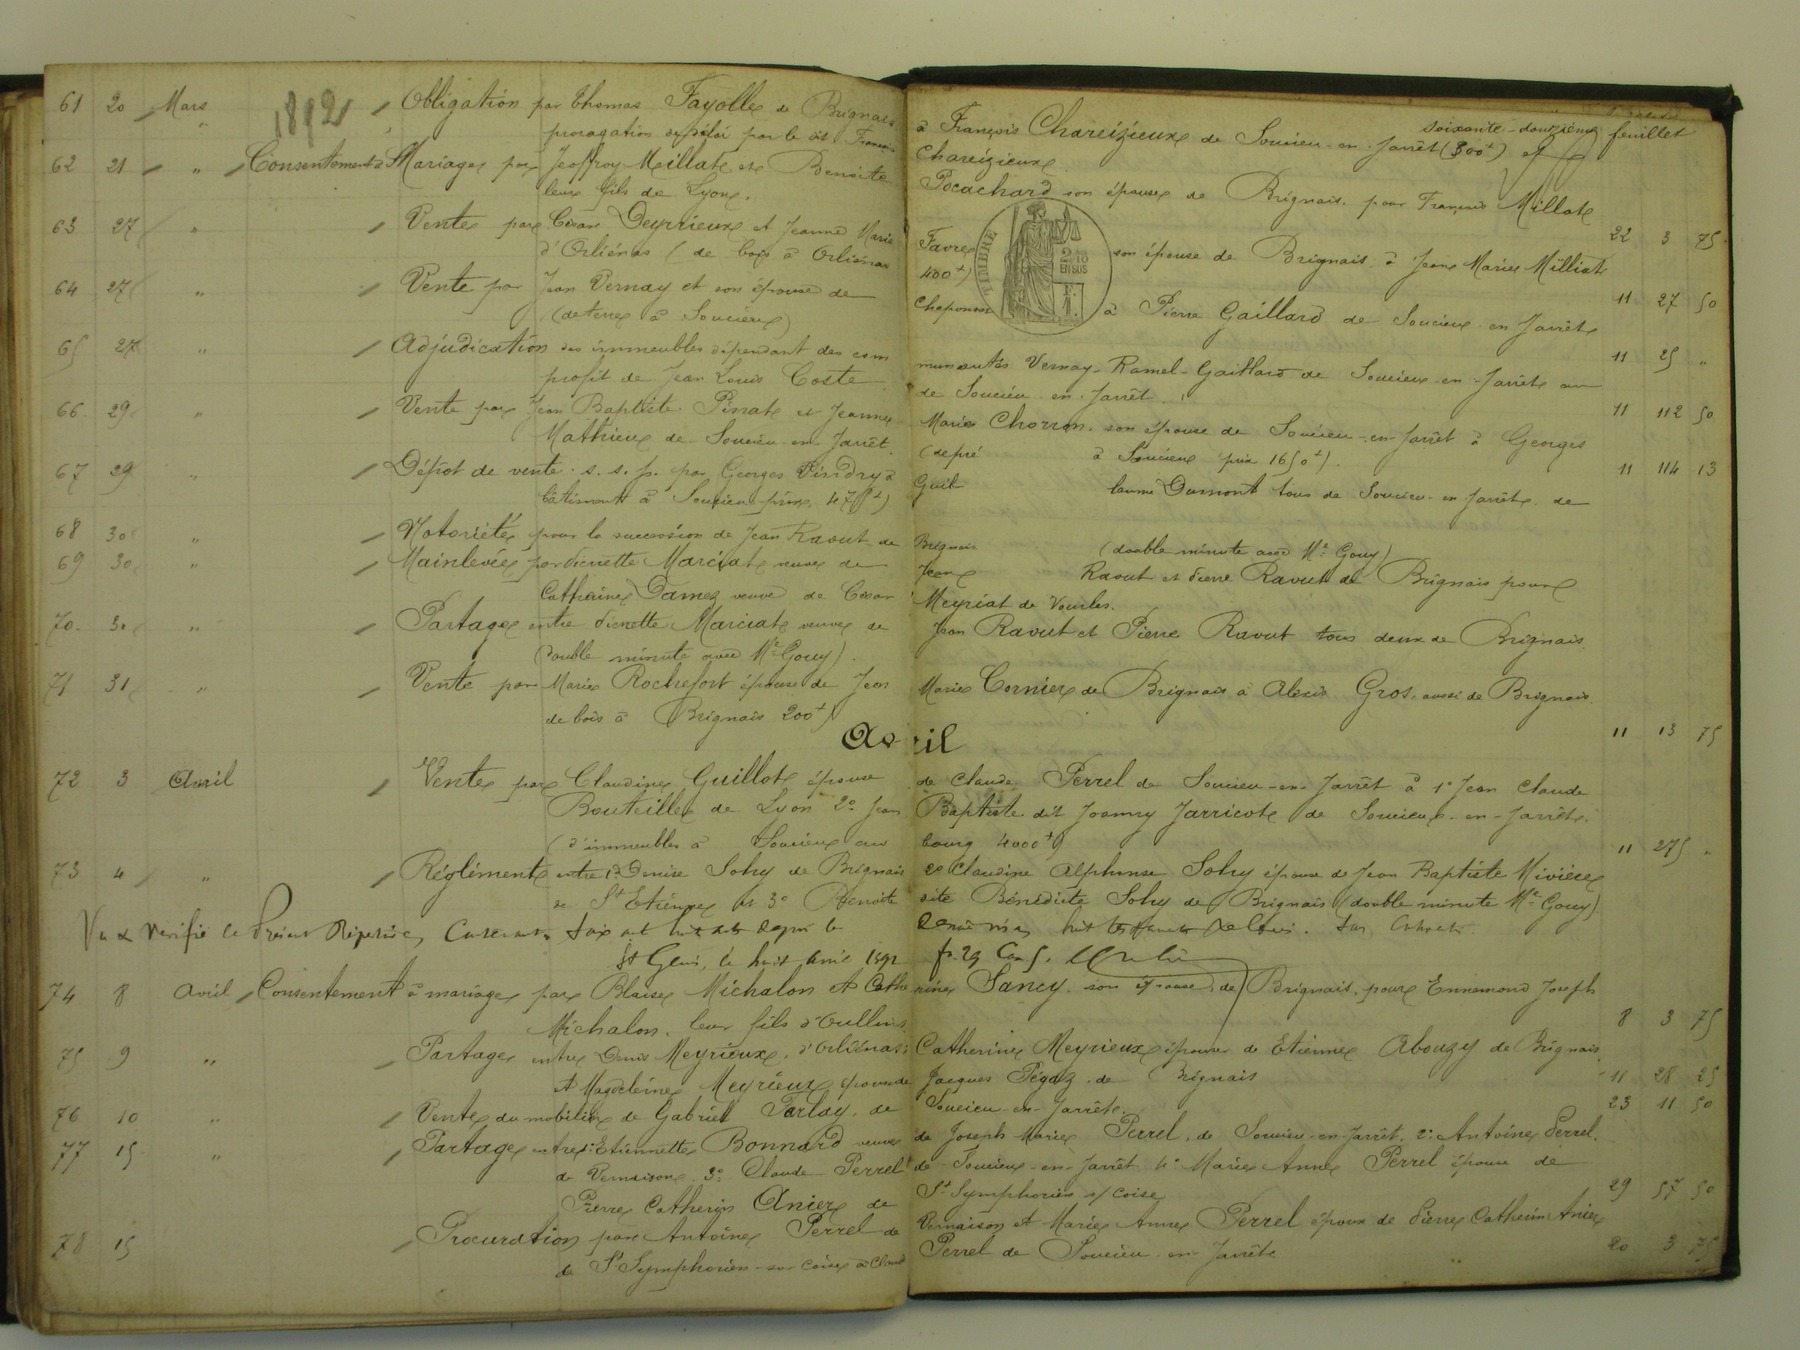 soixante-douzième feuillet
1892
61 20 Mars Obligation par Thomas Fayolle de Brignais à François Chareizieux de Soucieu-en-Jarrêt (300f) et
prorogation de délai par le dit François Chareizieux
62 21 " Consentement à Mariage par Jeoffroy Millat et Benoite Pocachard son épouse de Brignais pour François Millat
leur fils de Lyon. 22 3 75
63 27 " Vente par César Deyrieux et Jeanne Marie Favre son épouse de Brignais à Jean Marie Milliat
d'Orliénas (de bois à Orliénas 400f) 11 27 50
TIMBRE
2/10 EN SUS
64 27 " Vente par Jean Vernay et son épouse de Chaponost à Pierre Gaillard de Soucieu en Jarrêt
(de terre à Soucieu) 11 25 "
65 27 " Adjudication des immeubles dépendant des communautés Vernay-Ramel-Gaillard de Soucieu-en-Jarrêt au
profit de Jean Louis Coste de Soucieu-en-Jarrêt. 11 112 50
66 29 " Vente par Jean Baptiste Pinat et Jeanne Marie Chorron son épouse de Soucieu-en-Jarrêt à Georges
Mathieu de Soucieu-en-Jarrêt. (de pré à Soucieu prix 1650f). 11 114 13
67 29 " Dépôt de vente s.s.p. par Georges Pindry à Guillaume Dumont tous de Soucieu-en-Jarrêt de
bâtiment à Soucieu prix
68 30 " Notoriété pour la succession de Jean Ravut de Brignais (double minute avec Me Gouy)
69 30 " Mainlevée par Pierrette Marciat veuve de Jean Ravut et Pierre Ravut de Brignais pour
Catherine Damez veuve de César Meyriat de Vourles.
70 30 " Partage entre Pierrette Marciat veuve de Jean Ravut et Pierre Ravut tous deux de Brignais
(double minute avec Me Gouy).
71 31 " Vente par Marie Rochefort épouse de Jean Marie Cornier de Brignais à Alexis Gros, aussi de Brignais
de bois à Brignais 200f) 11 13 75
Avril
72 3 Avril Vente par Claudine Guillot épouse de Claude Perrel de Soucieu-en-Jarrêt à 1° Jean Claude
Bouteille de Lyon 2° Jean Baptiste dit Joanny Jarricot de Soucieu-en-Jarrêt.
(d'immeubles à Soucieu au bourg 4000f) 11 275 "
73 4 " Réglement entre 1° Denise Sohy de Brignais 2° Claudine Alphonse Sohy épouse de Jean Baptiste Rivière
de St Etienne et 3° Benoite dite Bénédicte Sohy de Brignais (double minute Me Gouy).
Vu & Vérifié le Présent Répertoire
St Genis, le huit avril 1892
74 8 Avril Consentement à mariage par Blaise Michalon et Catherine Sancy son épouse de Brignais pour Ennemond Joseph
Michalon leur fils d'Oullins. 8 3 75
75 9 " Partage entre Denis Meyrieux d'Orliénas Catherine Meyrieux épouse de Etienne Abouzy de Brignais
et Magdeleine Meyrieux épouse de Jacques Pégaz de Brignais 11 28 25
76 10 " Vente du mobilier de Gabriel Parlay de Soucieu-en-Jarrêt. 23 11 50
77 15 " Partage entre 1° Etiennette Bonnard veuve de Joseph Marie Perrel de Soucieu-en-Jarrêt 2° Antoine Perrel
de Vernaison 3° Claude Perrel de Soucieu-en-Jarrêt 4° Marie Anne Perrel épouse de
Pierre Catherin Anier de St Symphorien s/ Coise 29 57 50
78 15 Procuration par Antoine Perrel de Vernaison et Marie Anne Perrel épouse de Pierre Catherin Anier
de St Symphorien-sur-Coise à Claude Perrel de Soucieu-en-Jarrêt 20 3 75